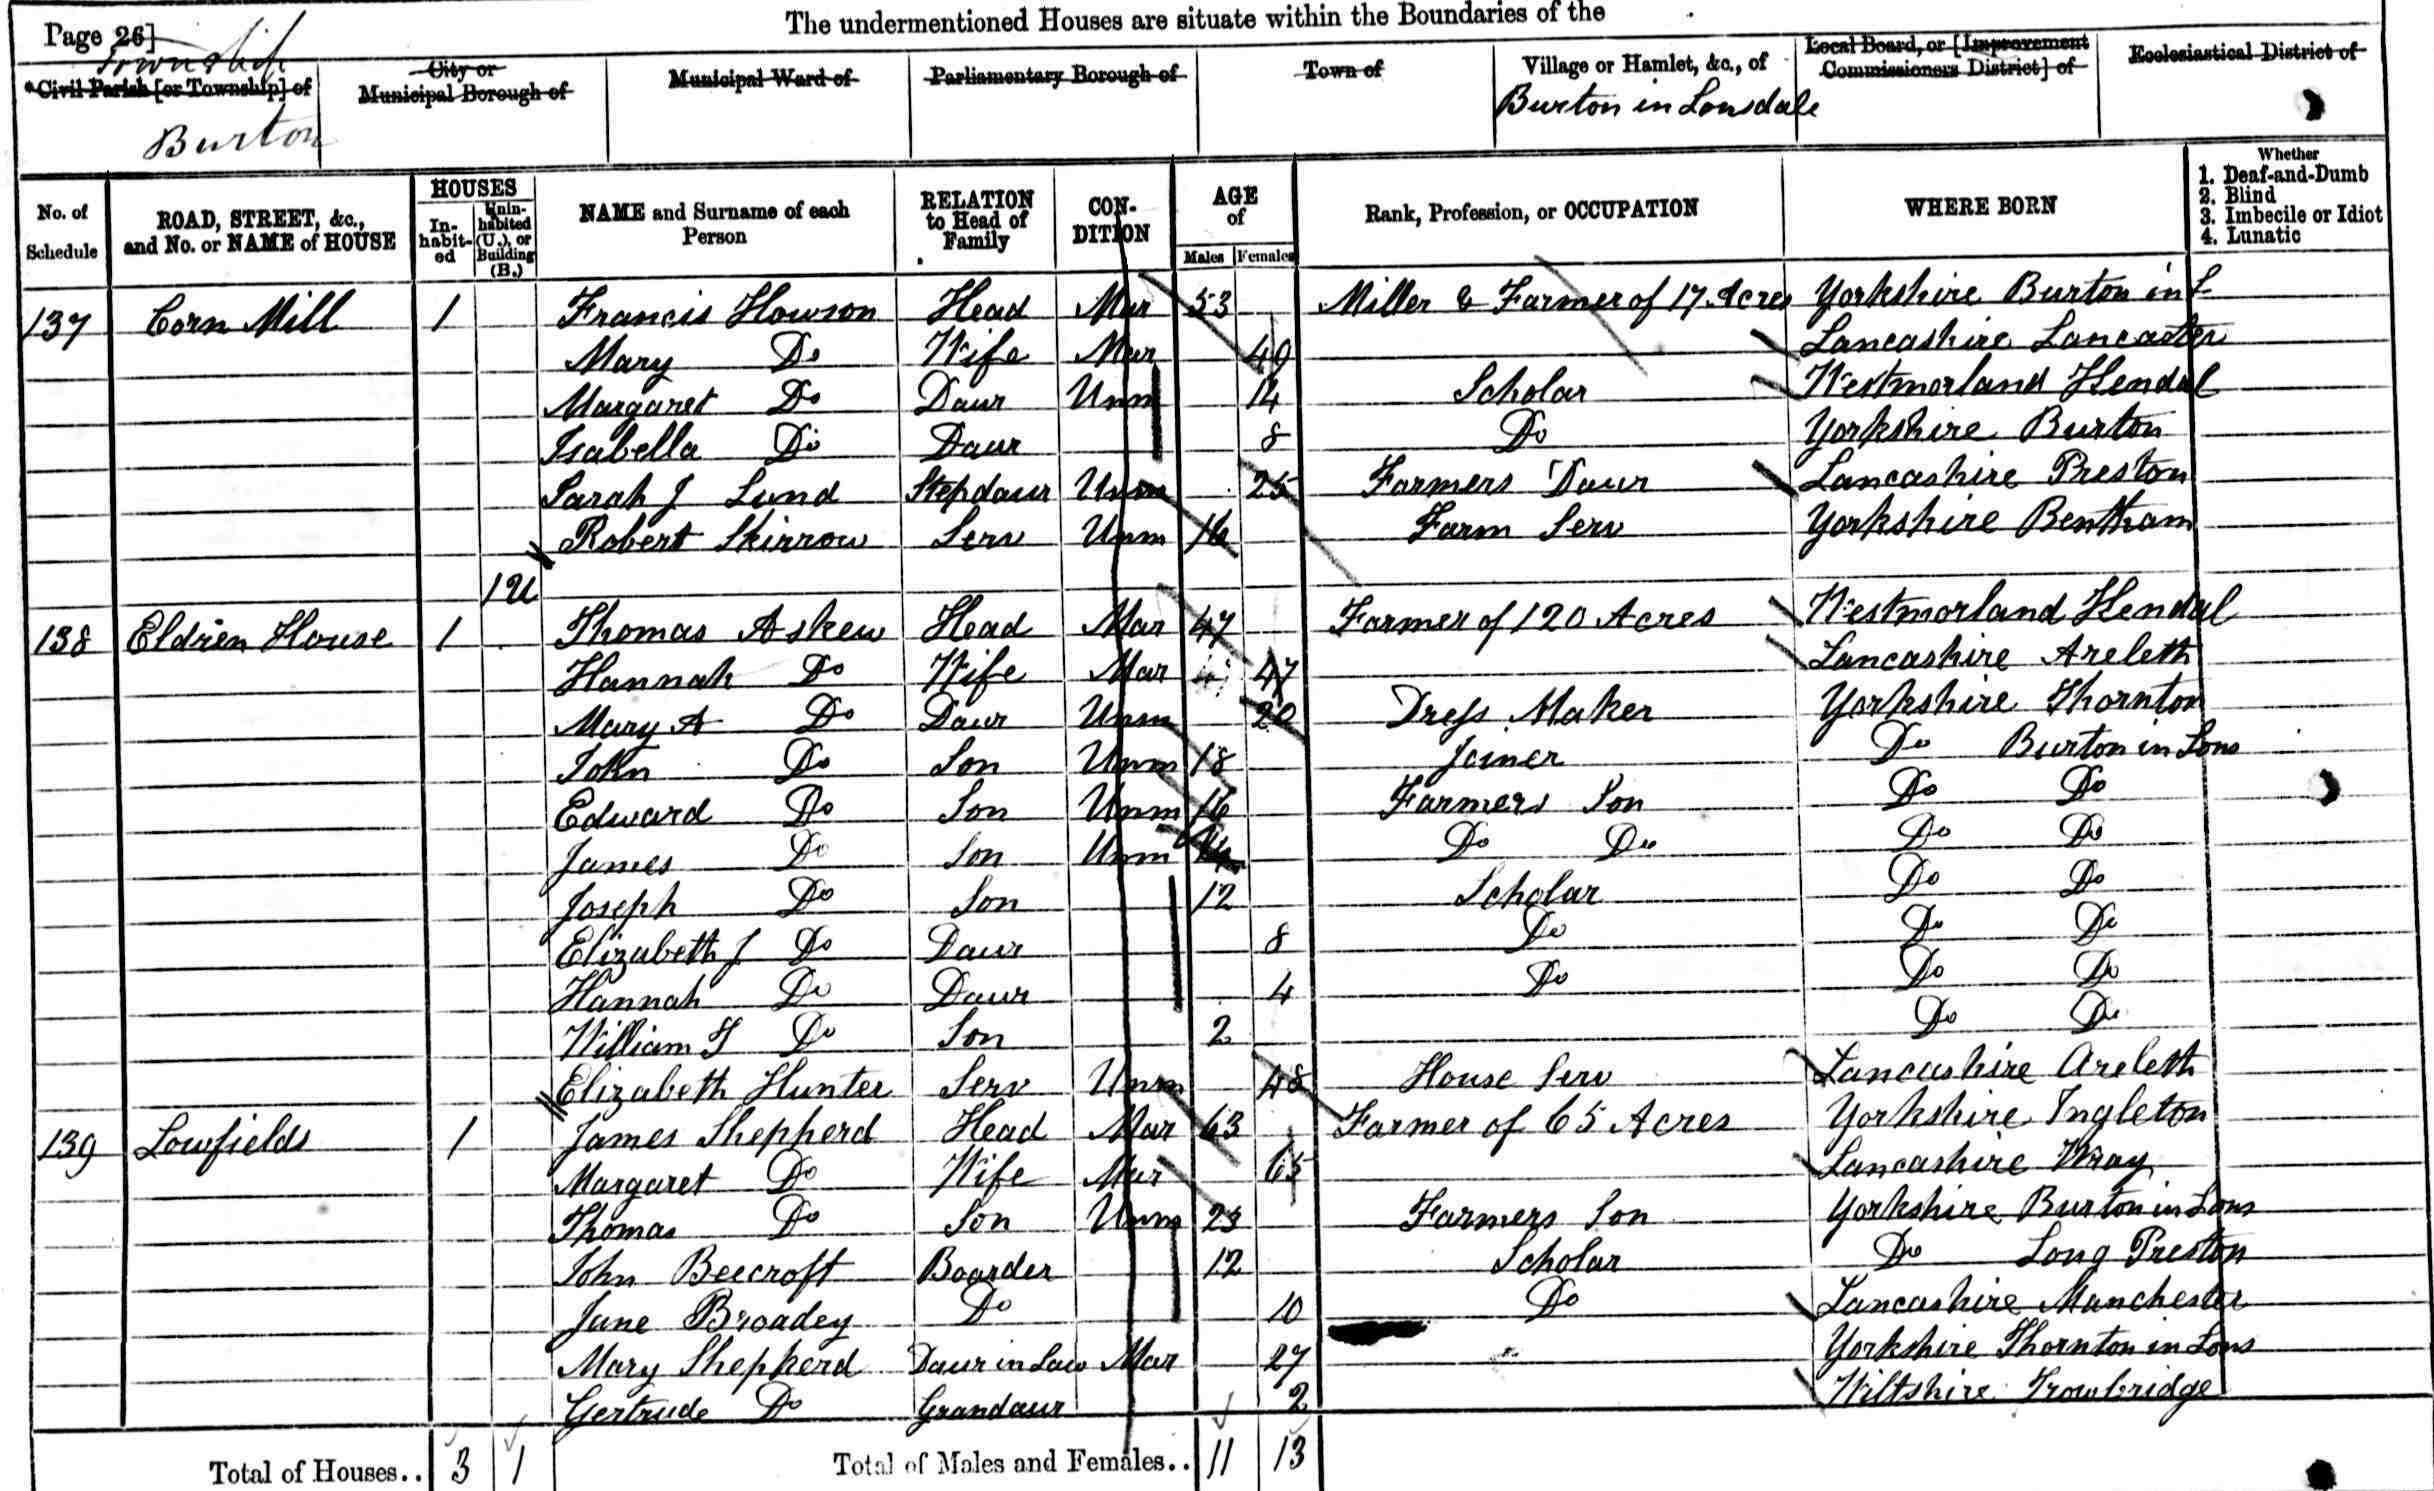 The undermentioned Houses are situate within the Boundaries of the
Page 26]
Township
*Civil Parish [or Township] of
Burton
City or
Municipal Borough of
Municipal Ward of
Parliamentary Borough of
Town of
Village or Hamlet, &c., of
Burton in Lonsdale
Local Board, or [Improvement
Commissioners District] of
Ecclesiastical District of
No. of
Schedule
ROAD, STREET, &c.,
and No. or NAME of HOUSE
HOUSES
In-
habit-
ed
Unin-
habited
(U.), or
Building
(B.)
NAME and Surname of each
Person
RELATION
to Head of
Family
CON-
DITION
AGE
of
Males Females
Rank, Profession, or OCCUPATION
WHERE BORN
Whether
1. Deaf-and-Dumb
2. Blind
3. Imbecile or Idiot
4. Lunatic
137 Corn Mill 1 Francis Howson Head Mar 53 Miller & Farmer of 17 Acres Yorkshire Burton in L
Mary Do Wife Mar 40 Lancashire Lancaster
Margaret Do Daur Unm 14 Scholar Westmorland Kendal
Isabella Do Daur 8 Do Yorkshire Burton
Sarah J Lund Stepdaur Unm 25 Farmers Daur Lancashire Preston
Robert Skirrow Serv Unm 16 Farm Serv Yorkshire Bentham
1U
138 Eldrien House 1 Thomas Askew Head Mar 47 Farmer of 120 Acres Westmorland Kendal
Hannah Do Wife Mar 47 Lancashire Areleth
Mary A Do Daur Unm 20 Dress Maker Yorkshire Thornton
John Do Son Unm 18 Joiner Do Burton in Lons
Edward Do Son Unm 16 Farmers Son Do Do
James Do Son Unm 14 Do Do Do Do
Joseph Do Son 12 Scholar Do Do
Elizabeth J Do Daur 8 Do Do Do
Hannah Do Daur 4 Do Do Do
William T Do Son 2 Do Do
Elizabeth Hunter Serv Unm 48 House Serv Lancashire Areleth
139 Lowfields 1 James Shepherd Head Mar 63 Farmer of 65 Acres Yorkshire Ingleton
Margaret Do Wife Mar 65 Lancashire Wray
Thomas Do Son Unm 23 Farmers Son Yorkshire Burton in Lons
John Beecroft Boarder 12 Scholar Do Long Preston
Jane Broadey Do 10 Do Lancashire Manchester
Mary Shepherd Daur in Law Mar 27 Yorkshire Thornton in Lons
Gertrude Do Grandaur 2 Wiltshire Trowbridge
Total of Houses.. 3 1 Total of Males and Females.. 11 13